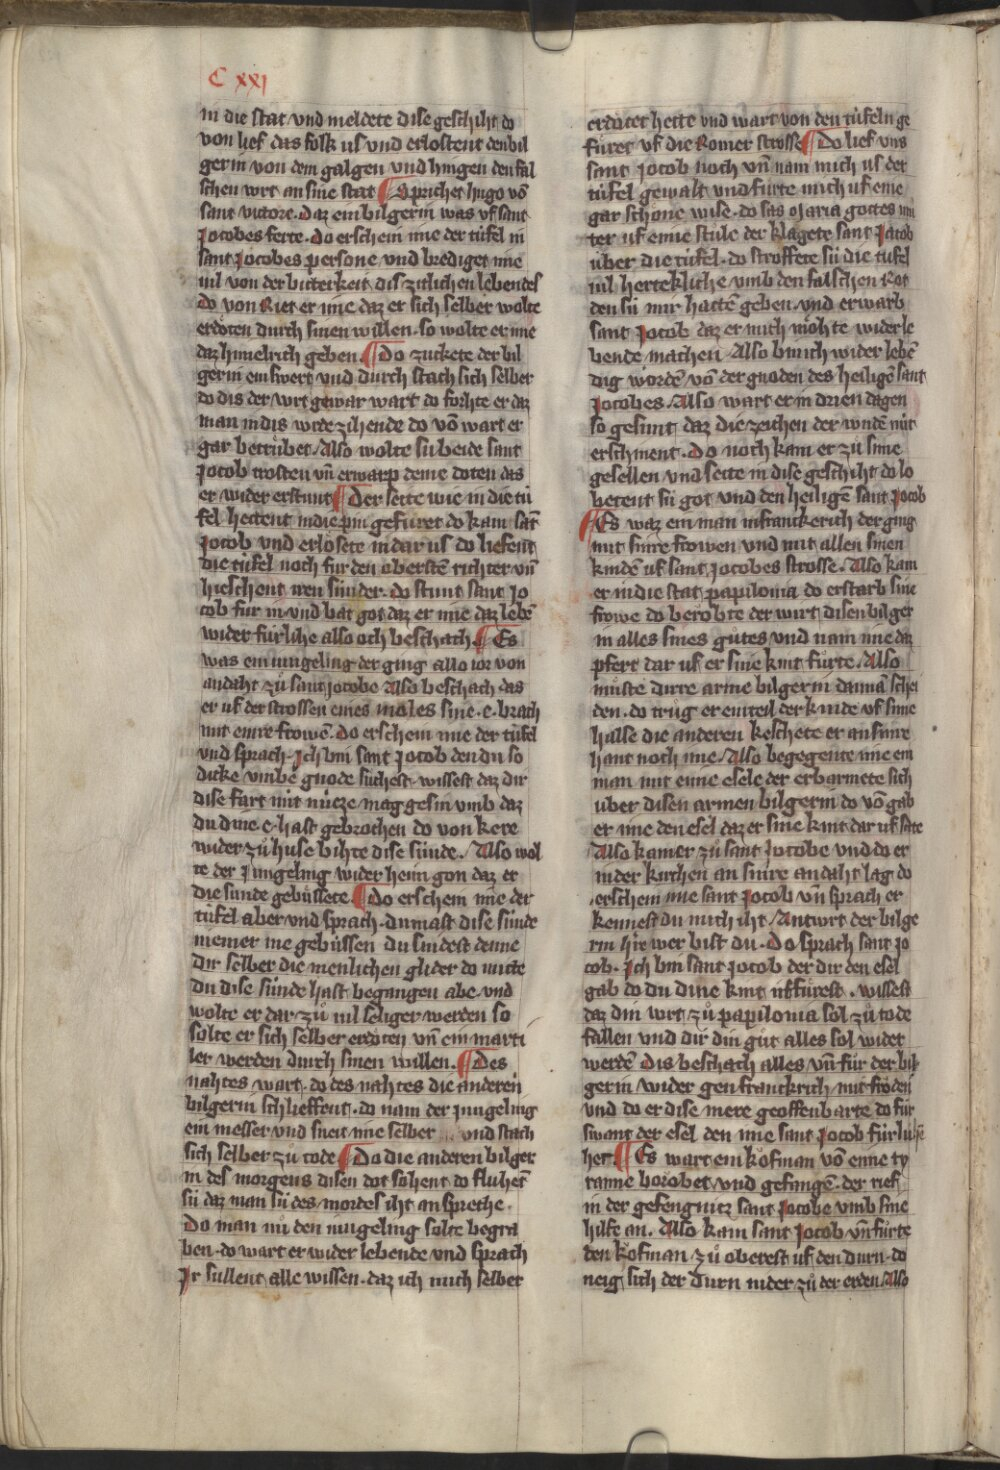 C xxj
in die stat vnd meldete dise geschiht do
von lief das folk us vnd erlostent den bil
gerin von dem galgen vnd hingen den fal
schen wrt an sine stat Sprichet hugo vō
sant victore. Daz ein bilgerin was vf sant
Jocobes ferte. Do erschein ime der tüfel in
sant Jocobes persone vnd brediget ime
vil von der bitterkeit dis zitlichen lebendes
do von Riet er ime daz er sich selber wolte
erdöten durch sinen willen. so wolte er ime
daz himelrich geben. Do zuckete der bil
gerin ein swert vnd durch stach sich selber
do dis der wrt gewar wart do forhte er daz
man in dis wrde zihende do vō wart er
gar betrübet. Also wolte sü beide sant
Jocob trosten vn̄ erwarp deme doten das
er wider erstunt Der seite wie in die tü
fel hettent in die pin gefüret do kam sāt
Jocob vnd erlösete in dar us do liefent
die tüfel noch für den oberstē richter vn̄
hieschent iren sünder. do stunt sant Jo
cob für in vnd bat got daz er ime daz lebē
wider fürlihe also och beschach. Es
was ein iungeling der ging allo ior von
andaht zů sant jocobe Also beschach das
er uf der strossen eines moles sine. e. brach
mit einre frowē. Do erschein ime der tüfel
vnd sprach. Ich bin sant Jocob den du so
dicke vmbe gnode süchest. wissest daz dir
dise fart nüt nücze mag gesin vmb daz
du dine e. hast gebrochen do von kere
wider zů huse bihte dise sünde. Also wol
te der Jungeling wider heim gon daz er
die sünde gebüssete. Do erschein ime der
tüfel aber vnd sprach. du maht dise sünde
niemer me gebüssen du snidest denne
dir selber die menlichen glider do mitte
du dise sünde hast begangen abe. vnd
wolte er dar zů vil seliger werden so
solte er sich selber erdöten vn̄ ein marti
ler werden durch sinen willen. Des
nahtes wart. do des nahtes die anderen
bilgerin schlieffent. do nam der jungeling
ein messer vnd sneit ime selber vnd stach
sich selber zů tode Do die anderen bilger
in des morgens disen dot sohent do fluhēt
sü daz man sü des mordes iht an sprehe.
Do man nu den iungeling solte begra
ben. do wart er wider lebende vnd sprach
Jr sullent alle wissen. daz ich mich selber
erdötet hette vnd wart von den tüfeln ge
füret vf die Romer strosse Do lief vns
sant Jocob noch vn̄ nam mich us der
tüfel gewalt vnd fürte mich uf eine
gar schöne wise. do sas Maria gottes mů
ter uf eime stule der klagete sant Jacob
über die tüfel. do stroffete sü die tüfel
vil herteklichе vmb den falschen Rot
den sü mir hattē geben. vnd erwarb
sant Jocob daz er mich möhte wider le
bende machen. Also bin ich wider lebē
dig wordē vō der gnoden des heiligē sant
Jocobes. Also wart er in drien dagen
so gesunt daz die zeichen der wndē nüt
erschinent. Do noch kam er zů sinē
gesellen vnd seite in dise geschiht do lo
betent sü got vnd den heiligē sant Jocob
Es waz ein man in franckerich der ging
mit sinre frowen vnd mit allen sinen
kindē uf sant Jocobes strosse. Also kam
er in die stat papilonia do erstarb sine
frowe do berobte der wirt disen bilger
in alles sines gůtes vnd nam ime daz
pfert dar uf er sine kint fůrte. Also
můste dirre arme bilgerin dannā schei
den. do trůg er ein teil der kinde vf sime
halse die anderen keschete er an sinre
hant noch ime. Also begegente ime ein
man mit eime esele der erbarmete sich
über disen armen bilgerin do vō gab
er ime den esel daz er sine kint dar uf saste
Also kam er zů sant Jocobe vnd do er
in der kirchen an sinre andaht lag do
erschein ime sant Jocob vn̄ sprach er
kennest du mich iht. Antwrt der bilge
rin hrre wer bist du. Do sprach sant Jo
cob. Ich bin sant Jocob der dir den esel
gab do du dine kint uffürest. wissest
daz din wrt zů papilonia sol zů tode
fallen vnd dir din gůt alles sol wider
werdē dis beschach alles vn̄ für der bil
gerin wider gen franckrich mit fröden
vnd do er dise mere geoffenbarte do für
swant der esel den ime sant Jocob fürluhē
het. Es wart ein kofman vō eime ty
ranne berobet vnd gefangē. der rief
in der gefengnitz sant Jocobe vmb sine
hilfe an. Also kam sant Jocob vn̄ fůrte
den kofman zů oberest uf den durn. do
neig sich der durn nider zů der erden Also